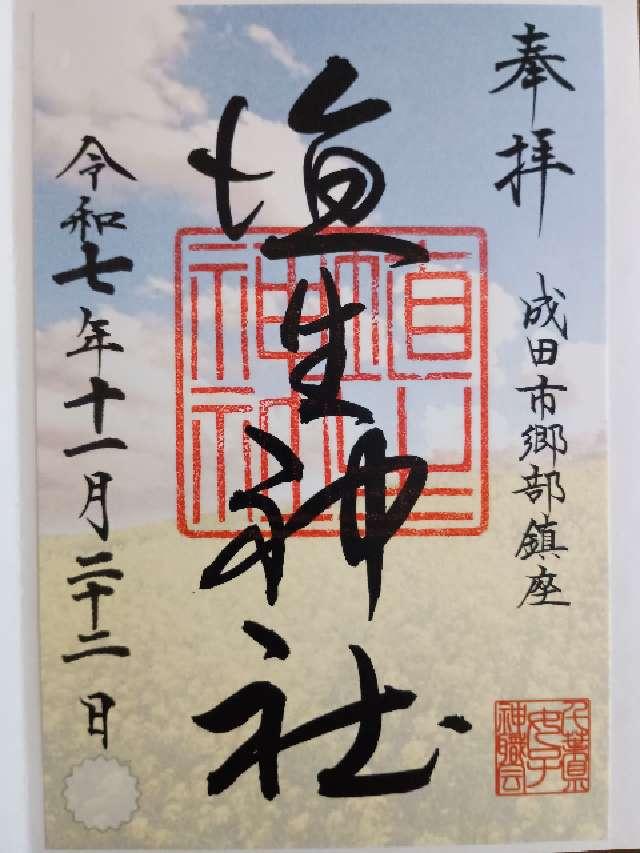 奉拝
成田市郷部鎮座
埴生神社
令和七年十一月二十二日
埴生
神社
千葉県
女子
神職会